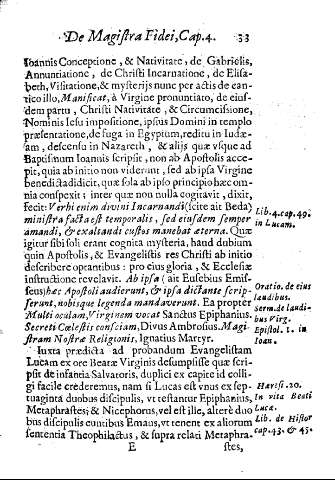 De Magistra Fidei, Cap. 4. 33
Ioannis Conceptione, & Nativitate, de Gabrielis,
Annuntiatione, de Christi Incarnatione, de Elisa-
beth, Visitatione, & mysterijs nunc per actis de can-
tico illo, Manificat, à Virgine pronuntiato, de eius-
dem partu, Christi Nativitate, & Circumcisione,
Nominis Iesu impositione, ipsius Domini in templo
præsentatione, de fuga in Egyptum, reditu in Iudæ-
am, descensu in Nazareth, & alijs quæ vsque ad
Baptismum Ioannis scripsit, non ab Apostolis acce-
pit, quia ab initio non viderunt, sed ab ipsa Virgine
benedicta didicit, quæ sola ab ipso principio hæc om-
nia conspexit; inter quæ non nulla cogitavit, dixit,
fecit: Verbi enim divini Incarnandi (scite ait Beda)
ministra facta est temporalis, sed eiusdem semper
amandi, & exaltandi custos manebat æterna. Quæ
igitur sibi soli erant cognita mysteria, haud dubium
quin Apostolis, & Evangelistis res Christi ab initio
describere optantibus: pro eius gloria, & Ecclesiæ
instructione revelavit. Ab ipsa (ait Eusebius Emis-
senus) hæc Apostoli audierunt, & ipsa dictante scrip-
serunt, nobisque legenda mandaverunt. Ea propter
Multi oculam, Virginem vocat Sanctus Epiphanius.
Secreti Cœlestis consciam, Divus Ambrosius. Magi-
stram Nostræ Religionis, Ignatius Martyr.
Iuxta prædicta ad probandum Evangelistam
Lucam ex ore Beatæ Virginis desumpsisse quæ scri-
psit de infantia Salvatoris, duplici ex capite id colli-
gi facile crederemus, nam si Lucas est vnus ex sep-
tuaginta duobus discipulis, vt testantur Epiphanius,
Metaphrastes; & Nicephorus, vel est ille, alter è duo
bus discipulis euntibus Emaus, vt tenent ex aliorum
sententia Theophilactus, & supra relati Metaphra-
E stes,
Lib. 4. cap. 49.
in Lucam.
Oratio. de eius
laudibus.
Serm. de laudi-
bus Virg.
Epistol. 1. in
Ioan.
Hæresi. 20.
In vita Beati
Lucæ.
Lib. de Histor
cap. 43. & 45.